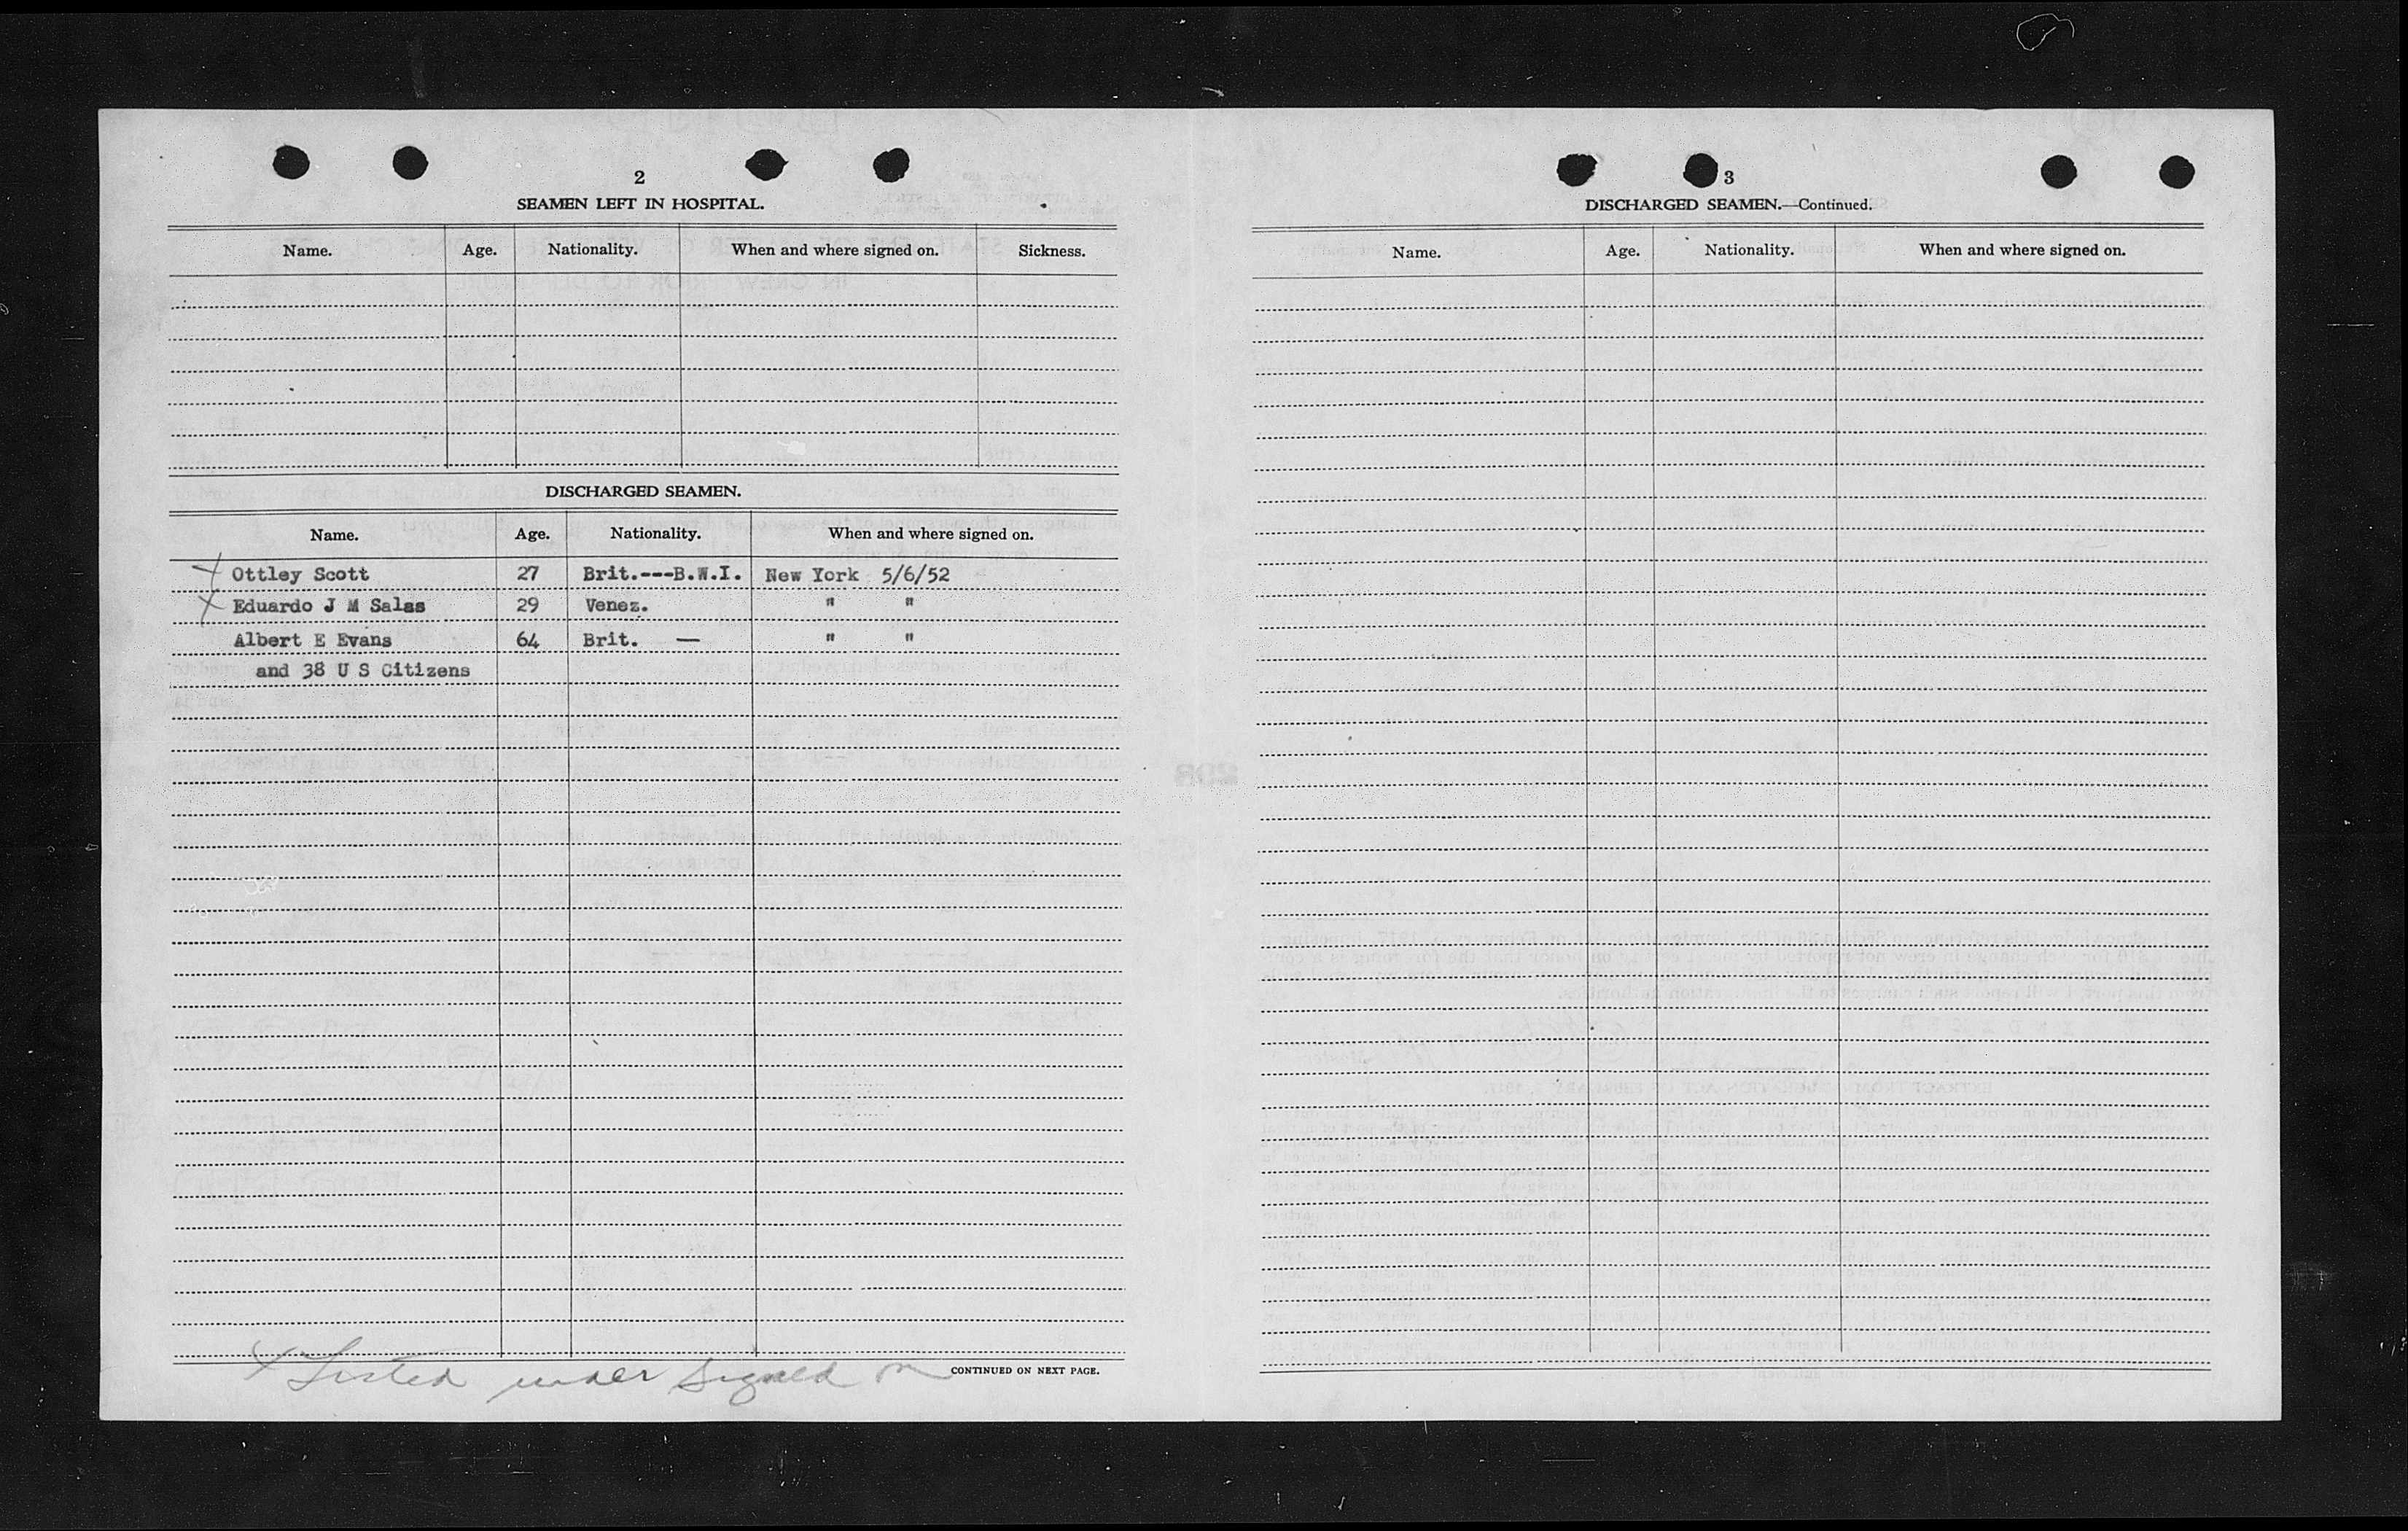 2
SEAMEN LEFT IN HOSPITAL.
Name. Age. Nationality. When and where signed on. Sickness.
DISCHARGED SEAMEN.
Name. Age. Nationality. When and where signed on.
X Ottley Scott 27 Brit.---B.W.I. New York 5/6/52
X Eduardo J M Salas 29 Venez. " "
Albert E Evans 64 Brit. — " "
and 38 U S Citizens
X Listed under signed on
CONTINUED ON NEXT PAGE.
3
DISCHARGED SEAMEN.—Continued.
Name. Age. Nationality. When and where signed on.